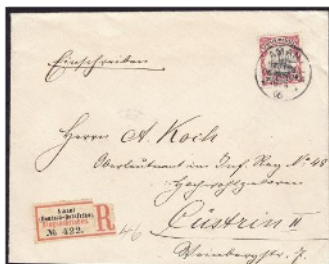 Einschreiben
Herrn A. Koch
Oberleutnant im Inf. Reg. No 48
Hochwohlgeboren
Cüstrin II
Weinbergstr. 7.
Amani
(Deutsch-Ostafrika).
Eingeschrieben.
R
№ 422.